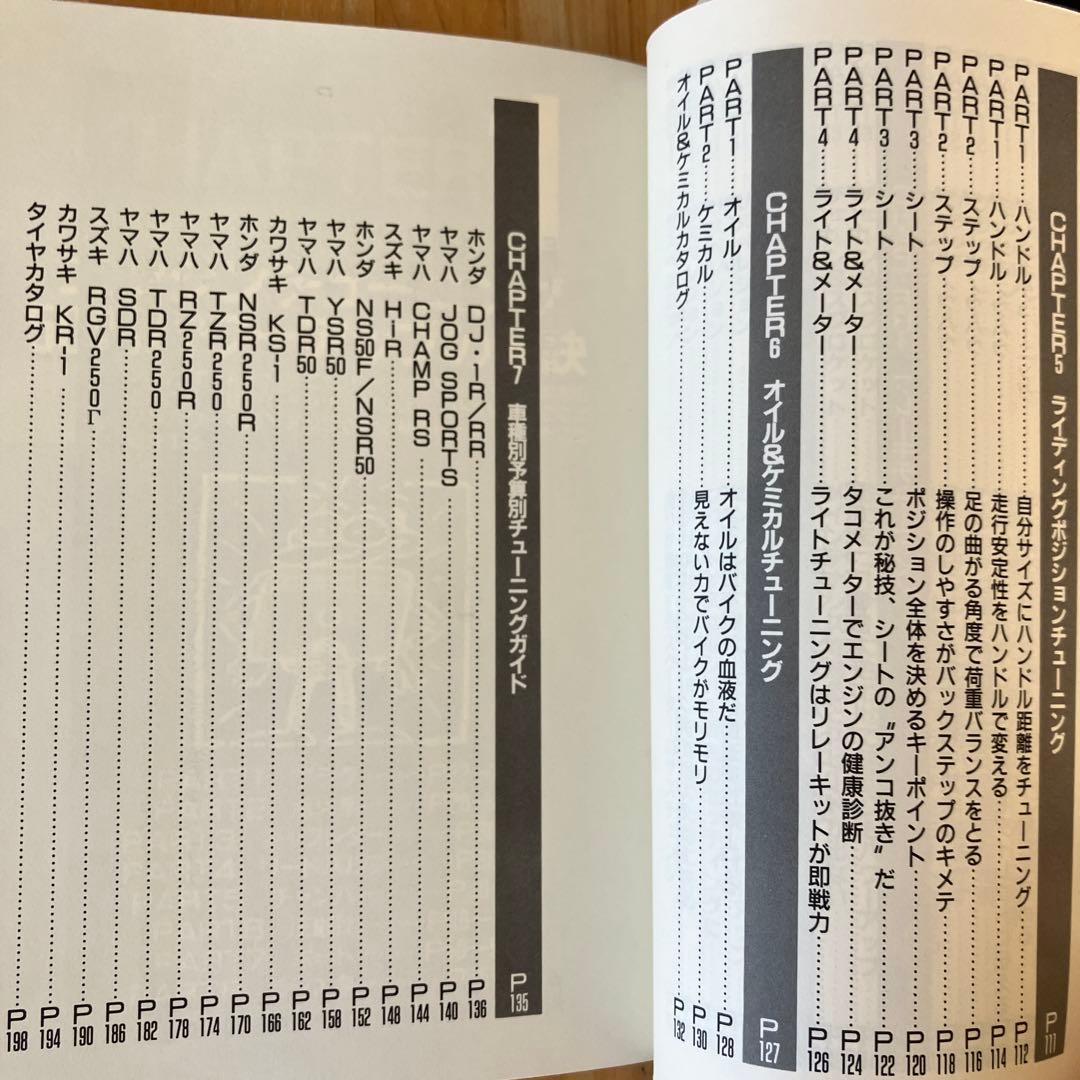 CHAPTER5 ライディングポジションチューニング P111
PART1 ハンドル 自分サイズにハンドル距離をチューニング P112
PART1 ハンドル 走行安定性をハンドルで変える P114
PART2 ステップ 足の曲がる角度で荷重バランスをとる P116
PART2 ステップ 操作のしやすさがバックステップのキメテ P118
PART3 シート ポジション全体を決めるキーポイント P120
PART3 シート これが秘技、シートの〝アンコ抜き〟だ P122
PART4 ライト&メーター タコメーターでエンジンの健康診断 P124
PART4 ライト&メーター ライトチューニングはリレーキットが即戦力 P126
CHAPTER6 オイル&ケミカルチューニング P127
PART1 オイル オイルはバイクの血液だ P128
PART2 ケミカル 見えない力でバイクがモリモリ P130
オイル&ケミカルカタログ P132
CHAPTER7 車種別予算別チューニングガイド P135
ホンダ DJ・1R/RR P136
ヤマハ JOG SPORTS P140
ヤマハ CHAMP RS P144
スズキ Hi-R P148
ホンダ NS50F/NSR50 P152
ヤマハ YSR50 P158
ヤマハ TDR50 P162
カワサキ KS-1 P166
ホンダ NSR250R P170
ヤマハ TZR250 P174
ヤマハ RZ250R P178
ヤマハ TDR250 P182
ヤマハ SDR P186
スズキ RGV250Γ P190
カワサキ KR-1 P194
タイヤカタログ P198